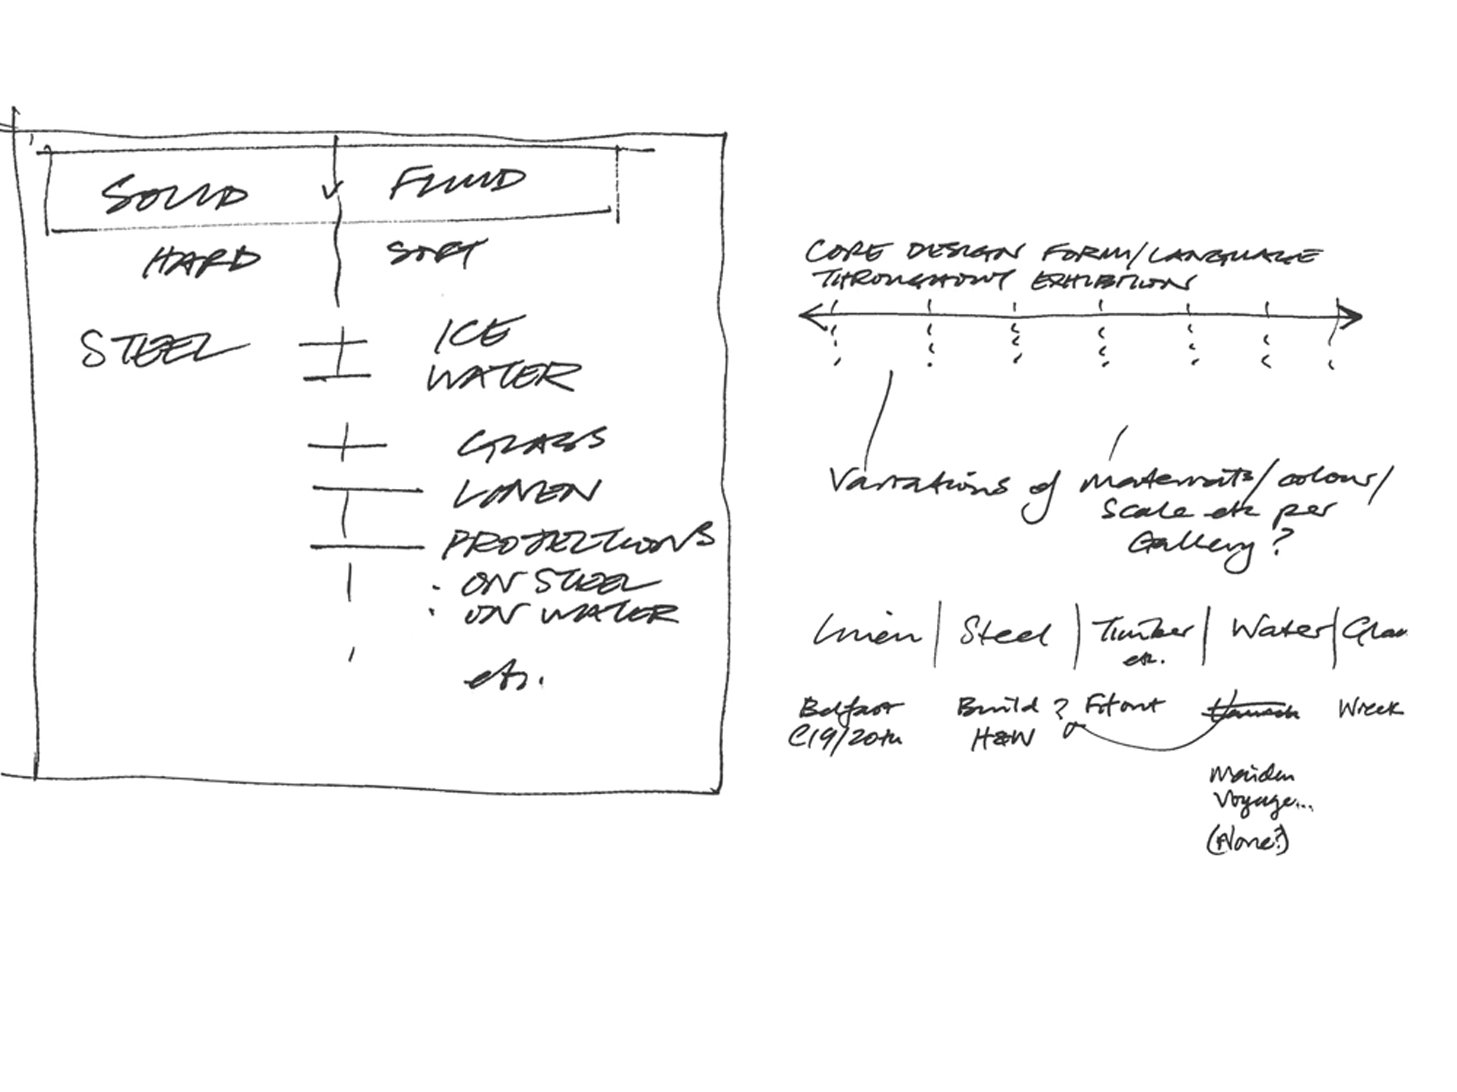 SOLID FLUID
HARD SOFT
STEEL ICE
WATER
GLASS
LINEN
PROJECTIONS
· ON STEEL
· ON WATER
etc.
CORE DESIGN FORM/LANGUAGE
THROUGHOUT EXHIBITION
Variations of materials/colour/
Scale etc per
Gallery?
Linen | Steel | Timber | Water | Glass
etc.
Belfast Build ? Fitout Launch Wreck
C19/20th H&W
Maiden
Voyage...
(Alone?)